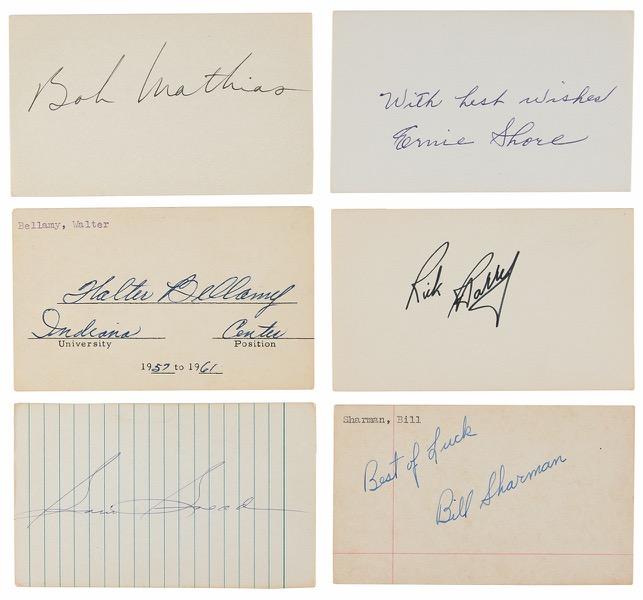 Bob Mathias
With best wishes
Ernie Shore
Bellamy, Walter
Walter Bellamy
Indiana Center
University Position
1957 to 1961
Rick Barry
Sharman, Bill
Best of Luck
Bill Sharman